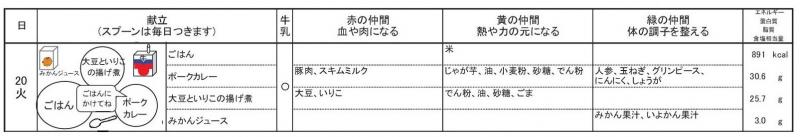 日
献立
(スプーンは毎日つきます)
牛乳
赤の仲間
血や肉になる
黄の仲間
熱や力の元になる
緑の仲間
体の調子を整える
エネルギー
蛋白質
脂質
食塩相当量
20
火
みかんジュース
大豆といりこの揚げ煮
ごはん
ごはんにかけてね
ポークカレー
ごはん
米
891 kcal
ポークカレー
○
豚肉、スキムミルク
じゃが芋、油、小麦粉、砂糖、でん粉
人参、玉ねぎ、グリンピース、にんにく、しょうが
30.6 g
大豆といりこの揚げ煮
大豆、いりこ
でん粉、油、砂糖、ごま
25.7 g
みかんジュース
みかん果汁、いよかん果汁
3.0 g